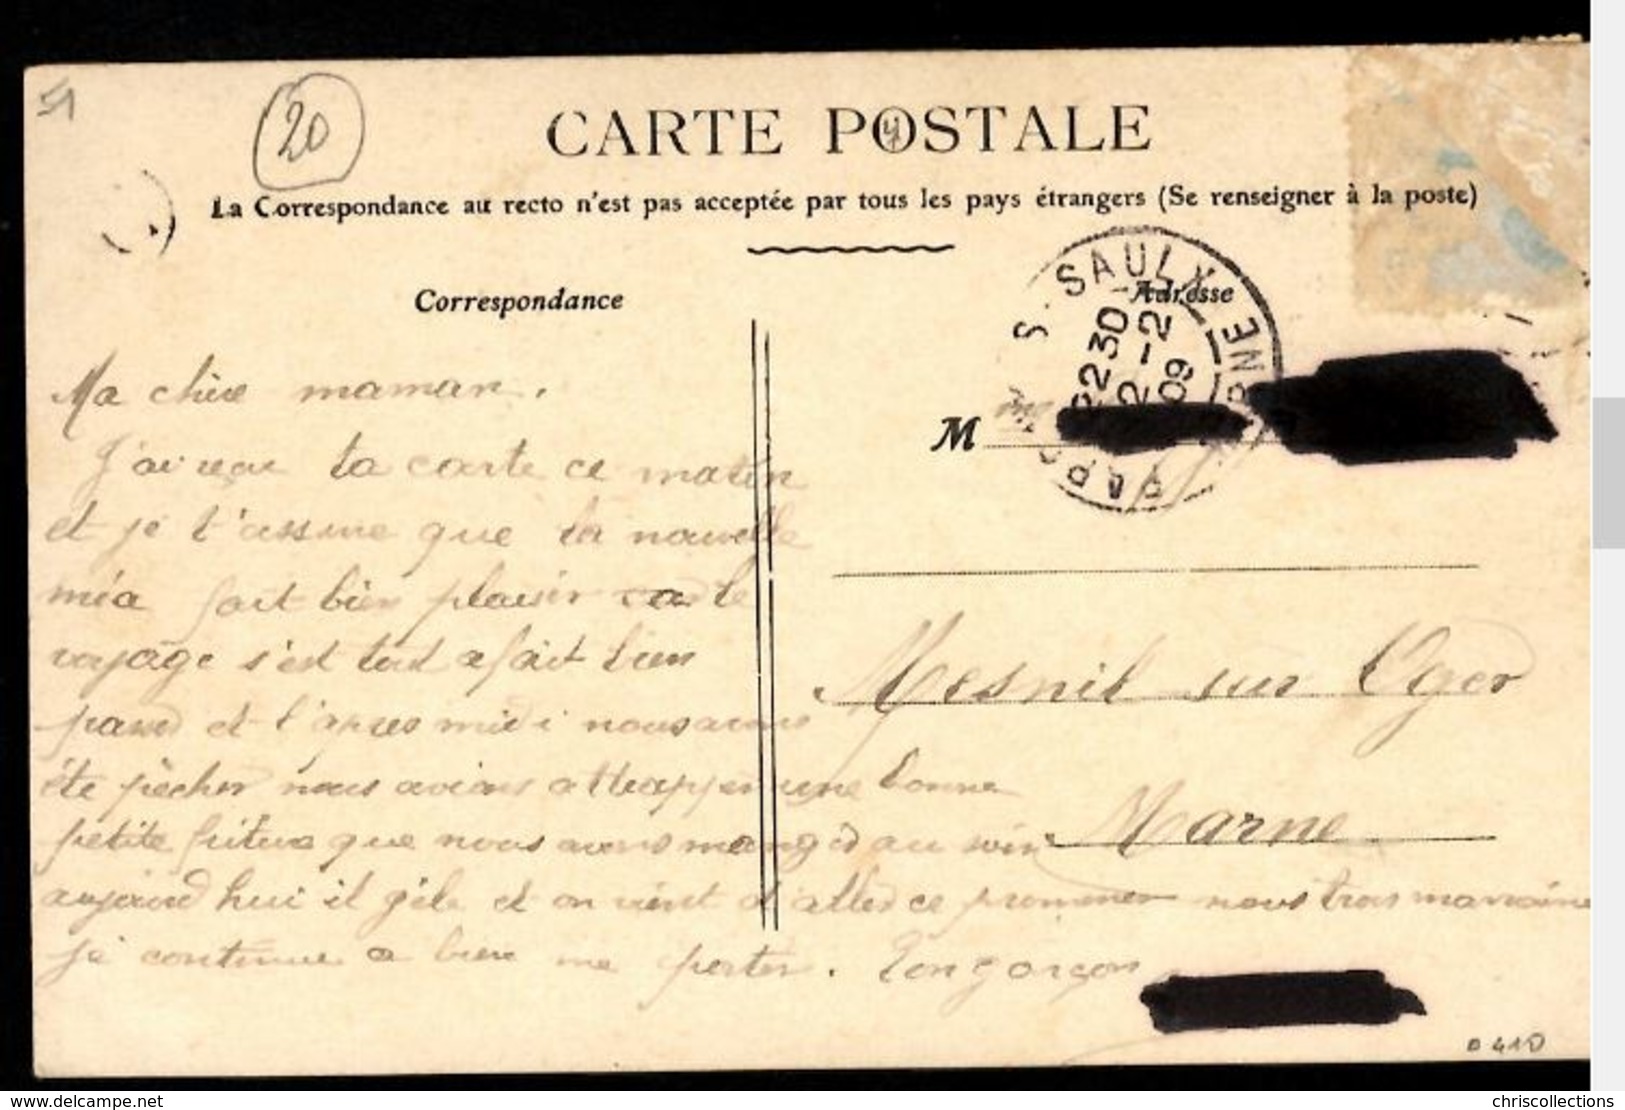 51
20
CARTE POSTALE
4
La Correspondance au recto n'est pas acceptée par tous les pays étrangers (Se renseigner à la poste)
Correspondance
Adresse
S. SAULX MARNE
22 30
2 - 2
09
M
Ma chère maman.
J'ai reçue ta carte ce matin
et je t'assure que ta nouvelle
m'a fait bien plaisir le
voyage s'est tout afait bien
passé et l'apres midi nous avons
été pècher nous avions attrapper une bonne
petite friture que nous avons mangé au soir
aujourd hui il gèle et on vient d'aller ce promener nous trois marraine
je continue a bien me porter. Ton garçon
Mesnil sur Oger
Marne
delcampe.net
chriscollections